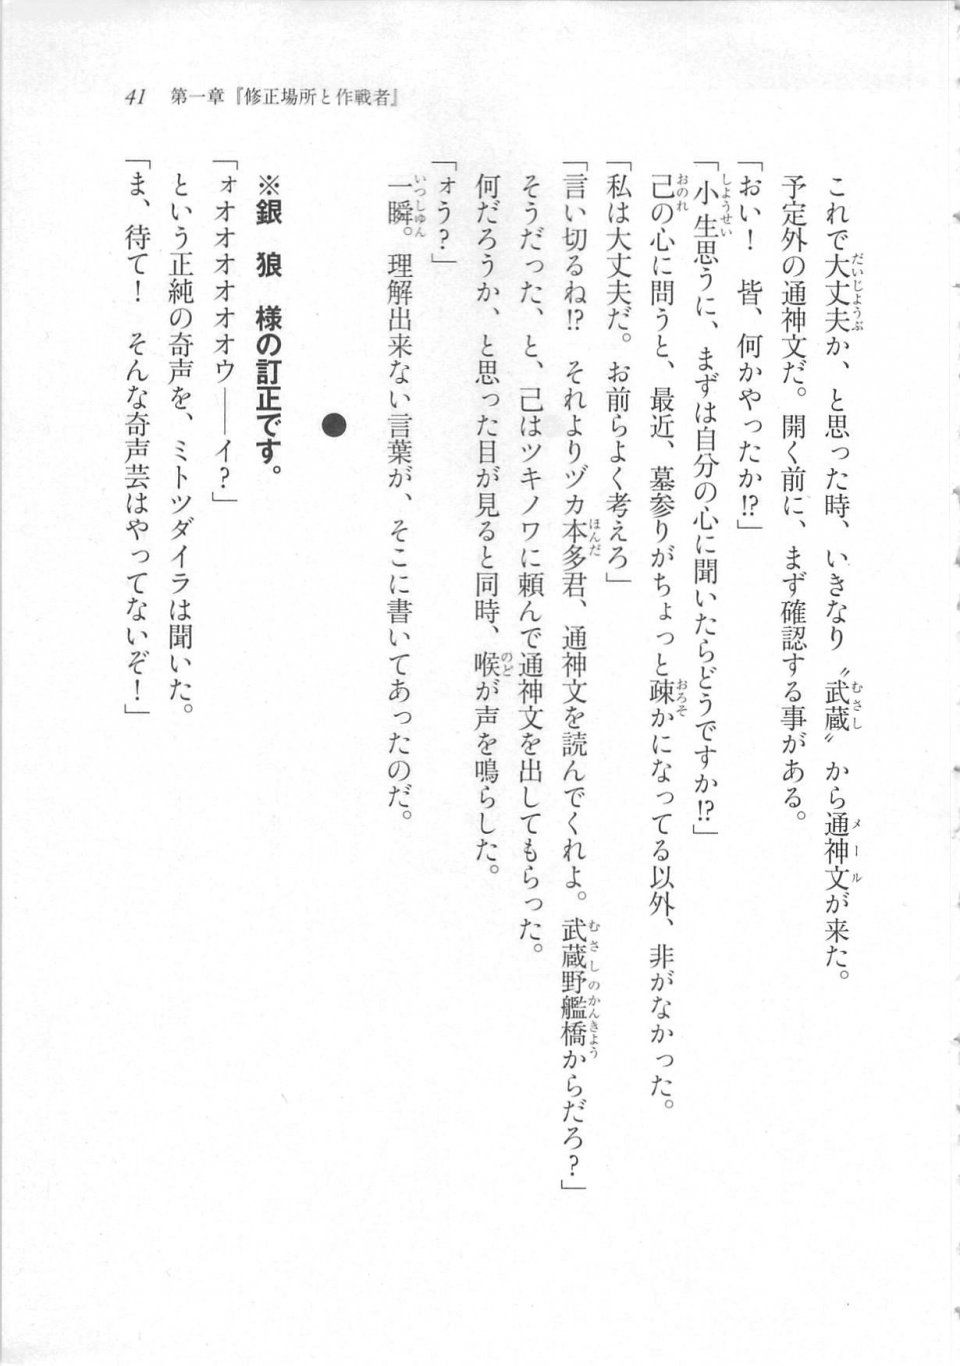 41　第一章『修正場所と作戦者』
これで大丈夫か、と思った時、いきなり〝武蔵〟から通神文が来た。
予定外の通神文だ。開く前に、まず確認する事がある。
「おい！　皆、何かやったか!?」
「小生思うに、まずは自分の心に聞いたらどうですか!?」
己の心に問うと、最近、墓参りがちょっと疎かになってる以外、非がなかった。
「私は大丈夫だ。お前らよく考えろ」
「言い切るね!?　それよりヅカ本多君、通神文を読んでくれよ。武蔵野艦橋からだろ？」
そうだった、と、己はツキノワに頼んで通神文を出してもらった。
何だろうか、と思った目が見ると同時、喉が声を鳴らした。
「ォう？」
一瞬。理解出来ない言葉が、そこに書いてあったのだ。
●
※銀　狼　様の訂正です。
「ォオオオオオウ――イ？」
という正純の奇声を、ミトツダイラは聞いた。
「ま、待て！　そんな奇声芸はやってないぞ！」